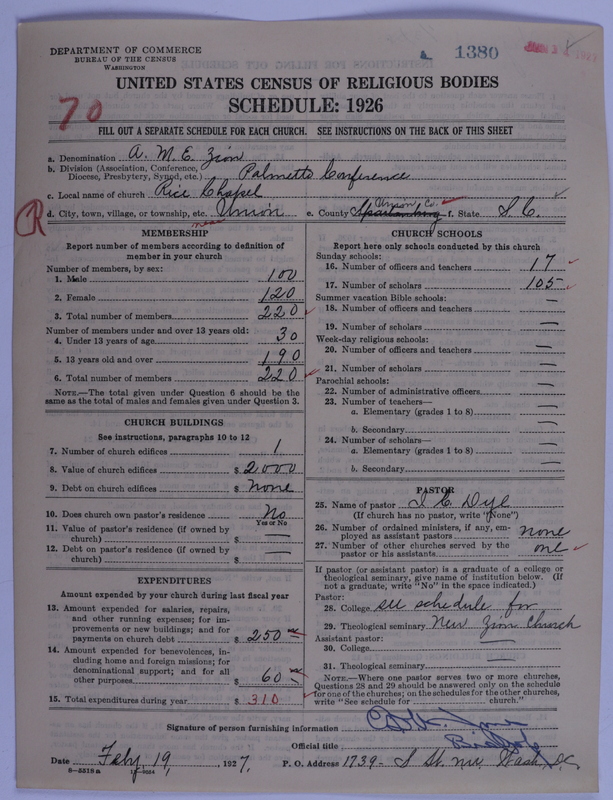 DEPARTMENT OF COMMERCE
BUREAU OF THE CENSUS
WASHINGTON
1380
UNITED STATES CENSUS OF RELIGIOUS BODIES
SCHEDULE: 1926
70
FILL OUT A SEPARATE SCHEDULE FOR EACH CHURCH. SEE INSTRUCTIONS ON THE BACK OF THIS SHEET
a. Denomination A. M. E. Zion
b. Division (Association, Conference, Diocese, Presbytery, Synod, etc.) Palmetto Conference
c. Local name of church Rice Chapel
d. City, town, village, or township, etc. near Union e. County Spartanburg Union Co. f. State S. C.
R
MEMBERSHIP
Report number of members according to definition of
member in your church
Number of members, by sex:
1. Male 100
2. Female 120
3. Total number of members 220
Number of members under and over 13 years old:
4. Under 13 years of age 30
5. 13 years old and over 190
6. Total number of members 220
NOTE.—The total given under Question 6 should be
same as the total of males and females given under Question 3.
CHURCH BUILDINGS
See instructions, paragraphs 10 to 12
7. Number of church edifices 1
8. Value of church edifices $ 2000
9. Debt on church edifices $ none
10. Does church own pastor's residence No
Yes or No
11. Value of pastor's residence (if owned by
church) $ —
12. Debt on pastor's residence (if owned by
church) $ —
EXPENDITURES
Amount expended by your church during last fiscal year
13. Amount expended for salaries, repairs,
and other running expenses; for im-
provements or new buildings; and for
payments on church debt $ 250
14. Amount expended for benevolences, in-
cluding home and foreign missions; for
denominational support; and for all
other purposes $ 60
15. Total expenditures during year $ 310
CHURCH SCHOOLS
Report here only schools conducted by this church
Sunday schools:
16. Number of officers and teachers 17
17. Number of scholars 105
Summer vacation Bible schools:
18. Number of officers and teachers —
19. Number of scholars —
Week-day religious schools:
20. Number of officers and teachers —
21. Number of scholars —
Parochial schools:
22. Number of administrative officers —
23. Number of teachers—
a. Elementary (grades 1 to 8) —
b. Secondary —
24. Number of scholars—
a. Elementary (grades 1 to 8) —
b. Secondary —
PASTOR
25. Name of pastor I. C. Dye
(If church has no pastor, write "None")
26. Number of ordained ministers, if any, em-
ployed as assistant pastors none
27. Number of other churches served by the
pastor or his assistants one
If pastor (or assistant pastor) is a graduate of a college or
theological seminary, give name of institution below. (If
not a graduate, write "No" in the space indicated.)
Pastor:
28. College see schedule for
29. Theological seminary New Zion Church
Assistant pastor:
30. College —
31. Theological seminary —
NOTE.—Where one pastor serves two or more churches,
Questions 28 and 29 should be answered only on the schedule
for one of the churches; on the schedules for the other churches,
write "See schedule for church."
Signature of person furnishing information
Official title Bishop
Date Feby 19, 1927. P. O. Address 1739- S St. NW, Wash, D.C.
8-5518a